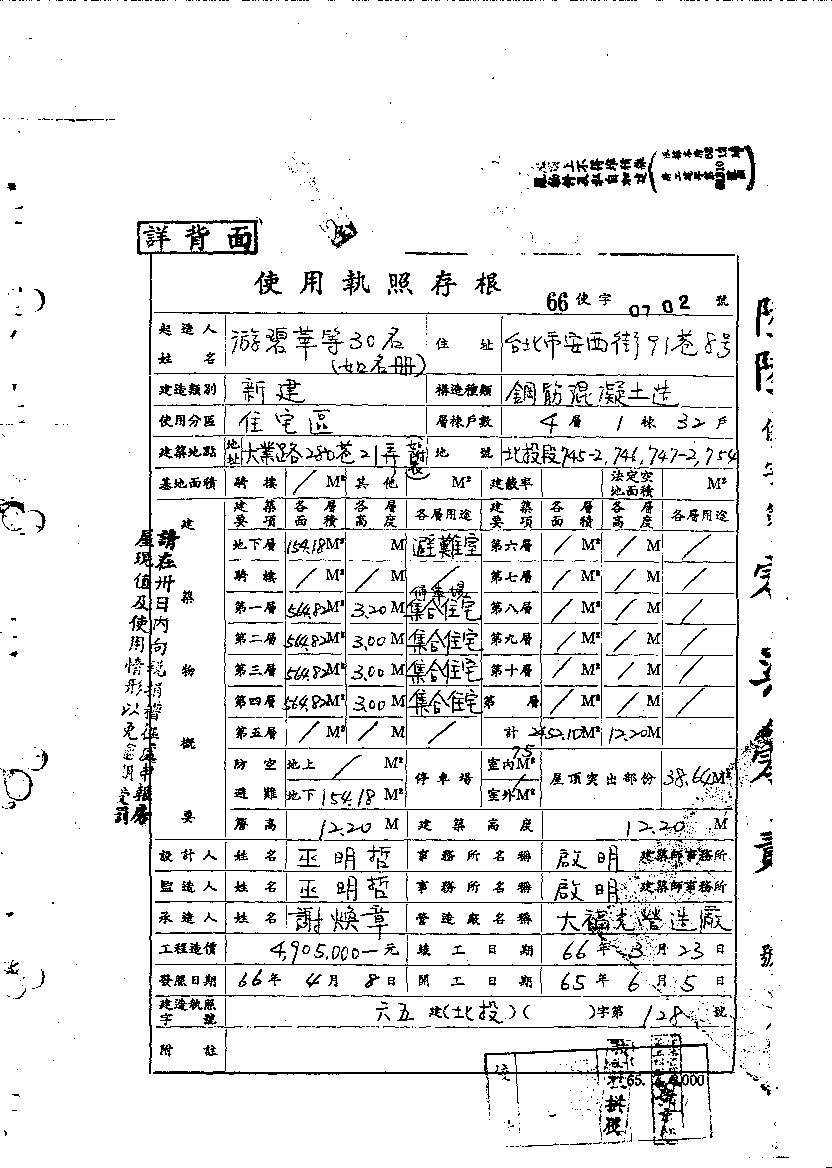 詳背面
使用執照存根
66使字0702號
起造人姓名 游碧華等30名(如名冊) 住址 台北市安西街91巷8号
建造類別 新建 構造種類 鋼筋混凝土造
使用分區 住宅區 層棟戶數 4層1棟32戶
建築地點 地址 大業路280巷21弄 地號 北投段745-2,746,747-2,754
基地面積 騎樓 / M² 其他 M² 建蔽率 法定空地面積 M²
建築物概要
建築要項 各層面積 各層高度 各層用途 建築要項 各層面積 各層高度 各層用途
地下層 154.18M² M 避難室 第六層 / M² / M /
騎樓 / M² / M / 第七層 / M² / M /
停車場
第一層 564.82M² 3.20M 集合住宅 第八層 / M² / M /
第二層 564.82M² 3.00M 集合住宅 第九層 / M² / M /
第三層 564.82M² 3.00M 集合住宅 第十層 / M² / M /
第四層 564.82M² 3.00M 集合住宅 第 層 / M² / M /
第五層 / M² / M / 計 2452.10M² 12.20M
防空避難 地上 / M² 停車場 室內75M² 屋頂突出部份 38.64M²
地下154.18M² 室外/M²
層高 12.20M 建築高度 12.20M
設計人 姓名 巫明哲 事務所名稱 啟明建築師事務所
監造人 姓名 巫明哲 事務所名稱 啟明建築師事務所
承造人 姓名 謝煥章 營造廠名稱 大福光營造廠
工程造價 4,905,000—元 竣工日期 66年3月23日
發照日期 66年4月8日 開工日期 65年6月5日
建造執照字號 六五建(北投)( )字第128號
附註
請在卅日內向稅捐稽征處申報房
屋現值及使用情形以免
受罰
65.
000